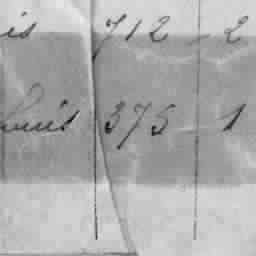 is 712 - 2
Louis 375 - 1